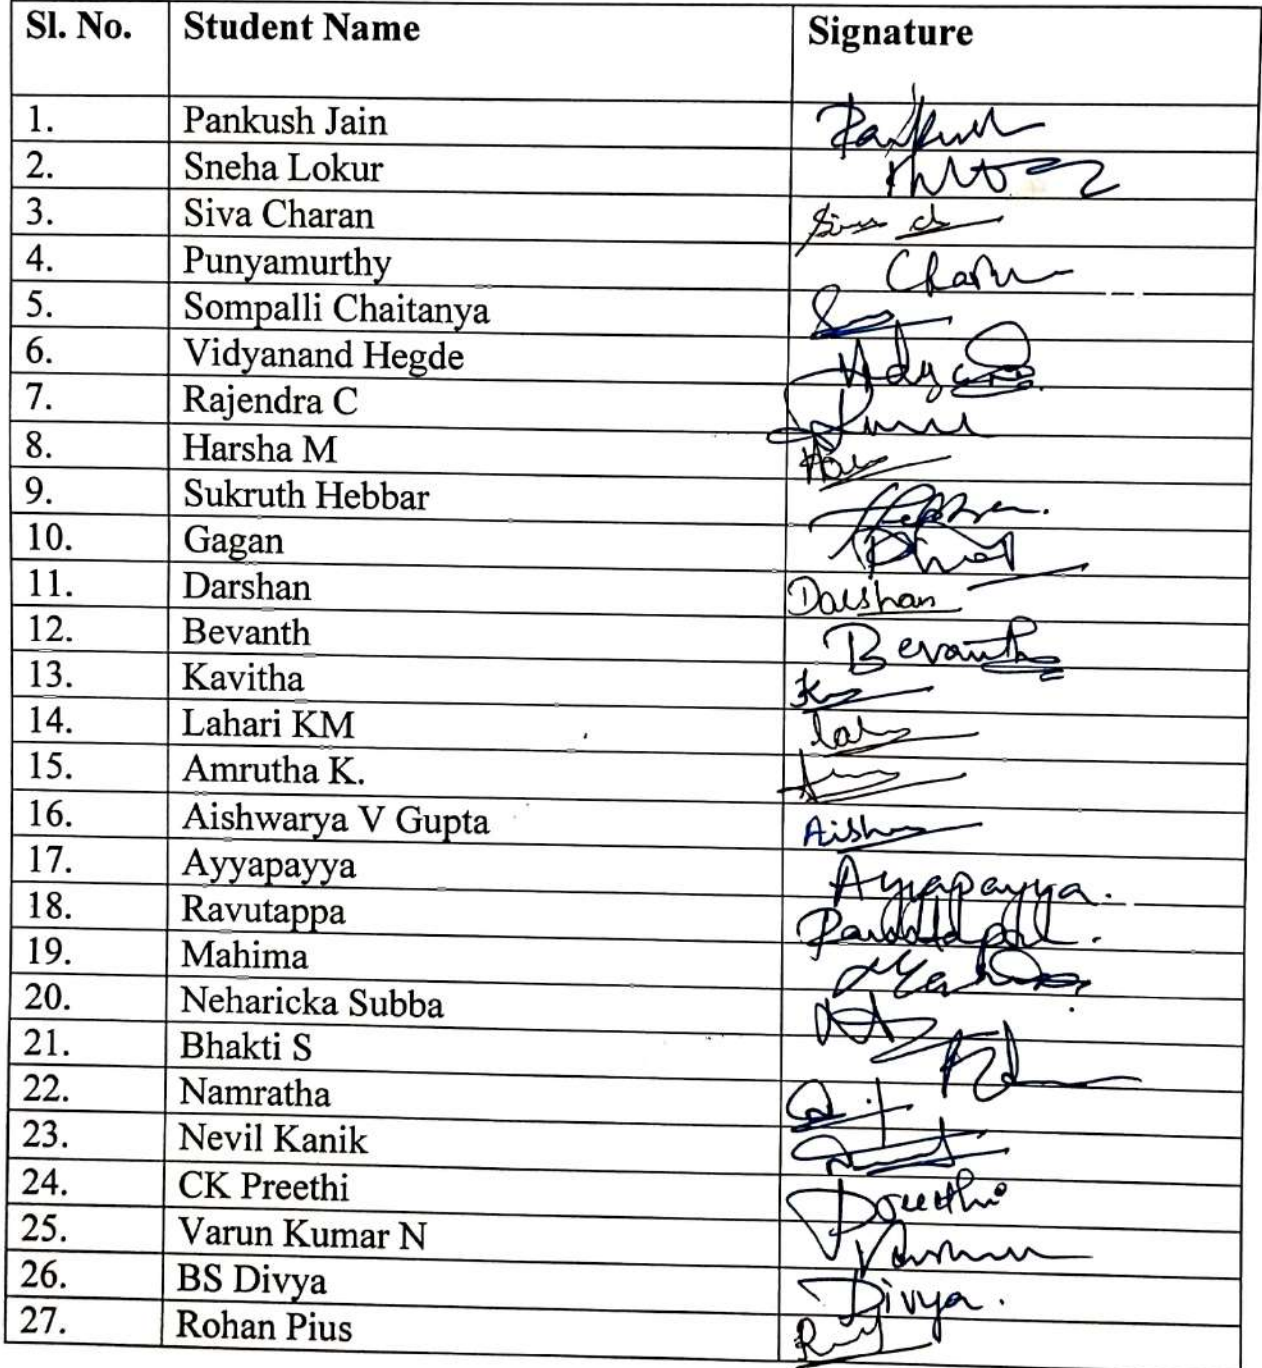 Sl. No. Student Name Signature
1. Pankush Jain Pankush
2. Sneha Lokur
3. Siva Charan
4. Punyamurthy
5. Sompalli Chaitanya
6. Vidyanand Hegde
7. Rajendra C
8. Harsha M
9. Sukruth Hebbar
10. Gagan
11. Darshan Darshan
12. Bevanth Bevanth
13. Kavitha
14. Lahari KM
15. Amrutha K.
16. Aishwarya V Gupta Aish
17. Ayyapayya Ayyapayya.
18. Ravutappa
19. Mahima
20. Neharicka Subba
21. Bhakti S
22. Namratha
23. Nevil Kanik
24. CK Preethi Preethi
25. Varun Kumar N
26. BS Divya Divya.
27. Rohan Pius